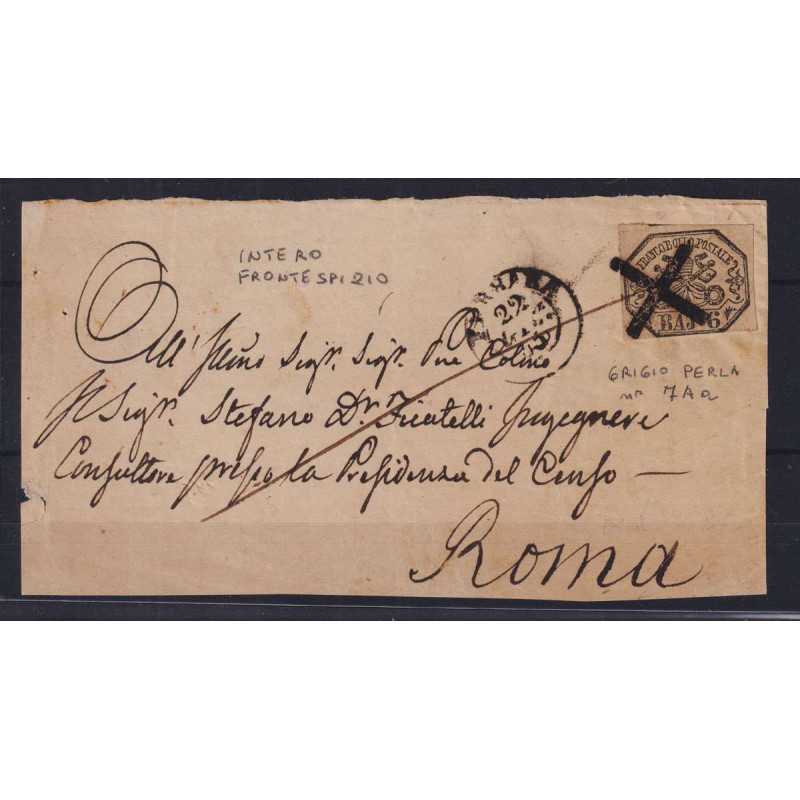 INTERO
FRONTESPIZIO
22
FRANCABOLLO POSTALE
BAJ. 6
GRIGIO PERLA
nº 7Aa
All' Illmo Sigr. Sigr. Pne Colmo
Il Sigr. Stefano Dr. Ficatelli Ingegnere
Consultore presso la Presidenza del Censo —
Roma